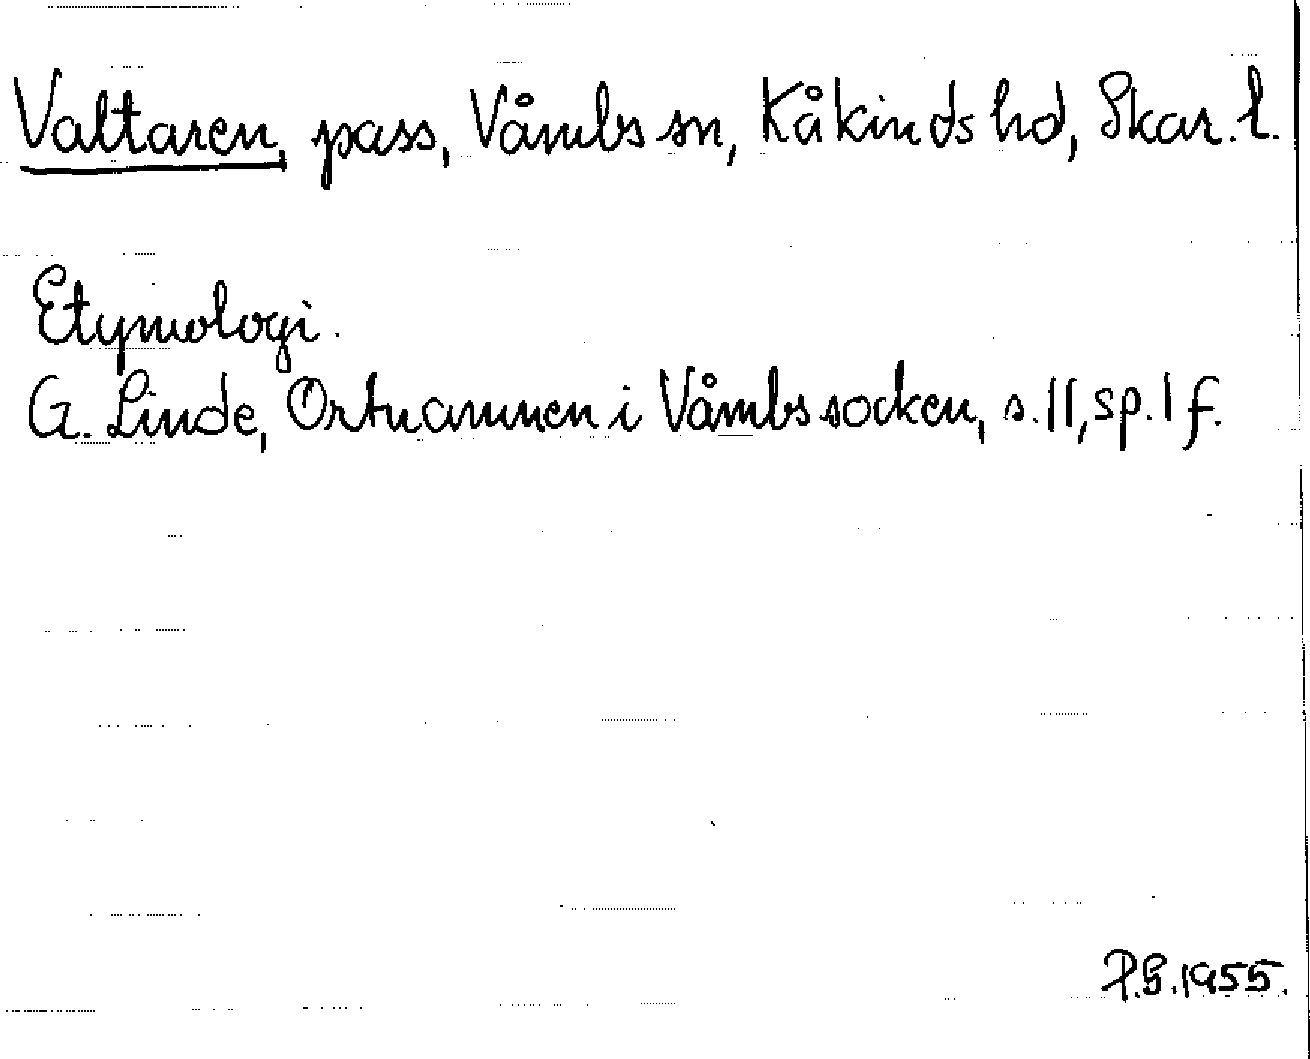 Valtaren, pass, Våmbs sn, Kåkinds hd, Skar. l.
Etymologi.
G. Linde, Ortnamnen i Våmbs socken, s. 11, sp. 1 f.
P.G. 1955.